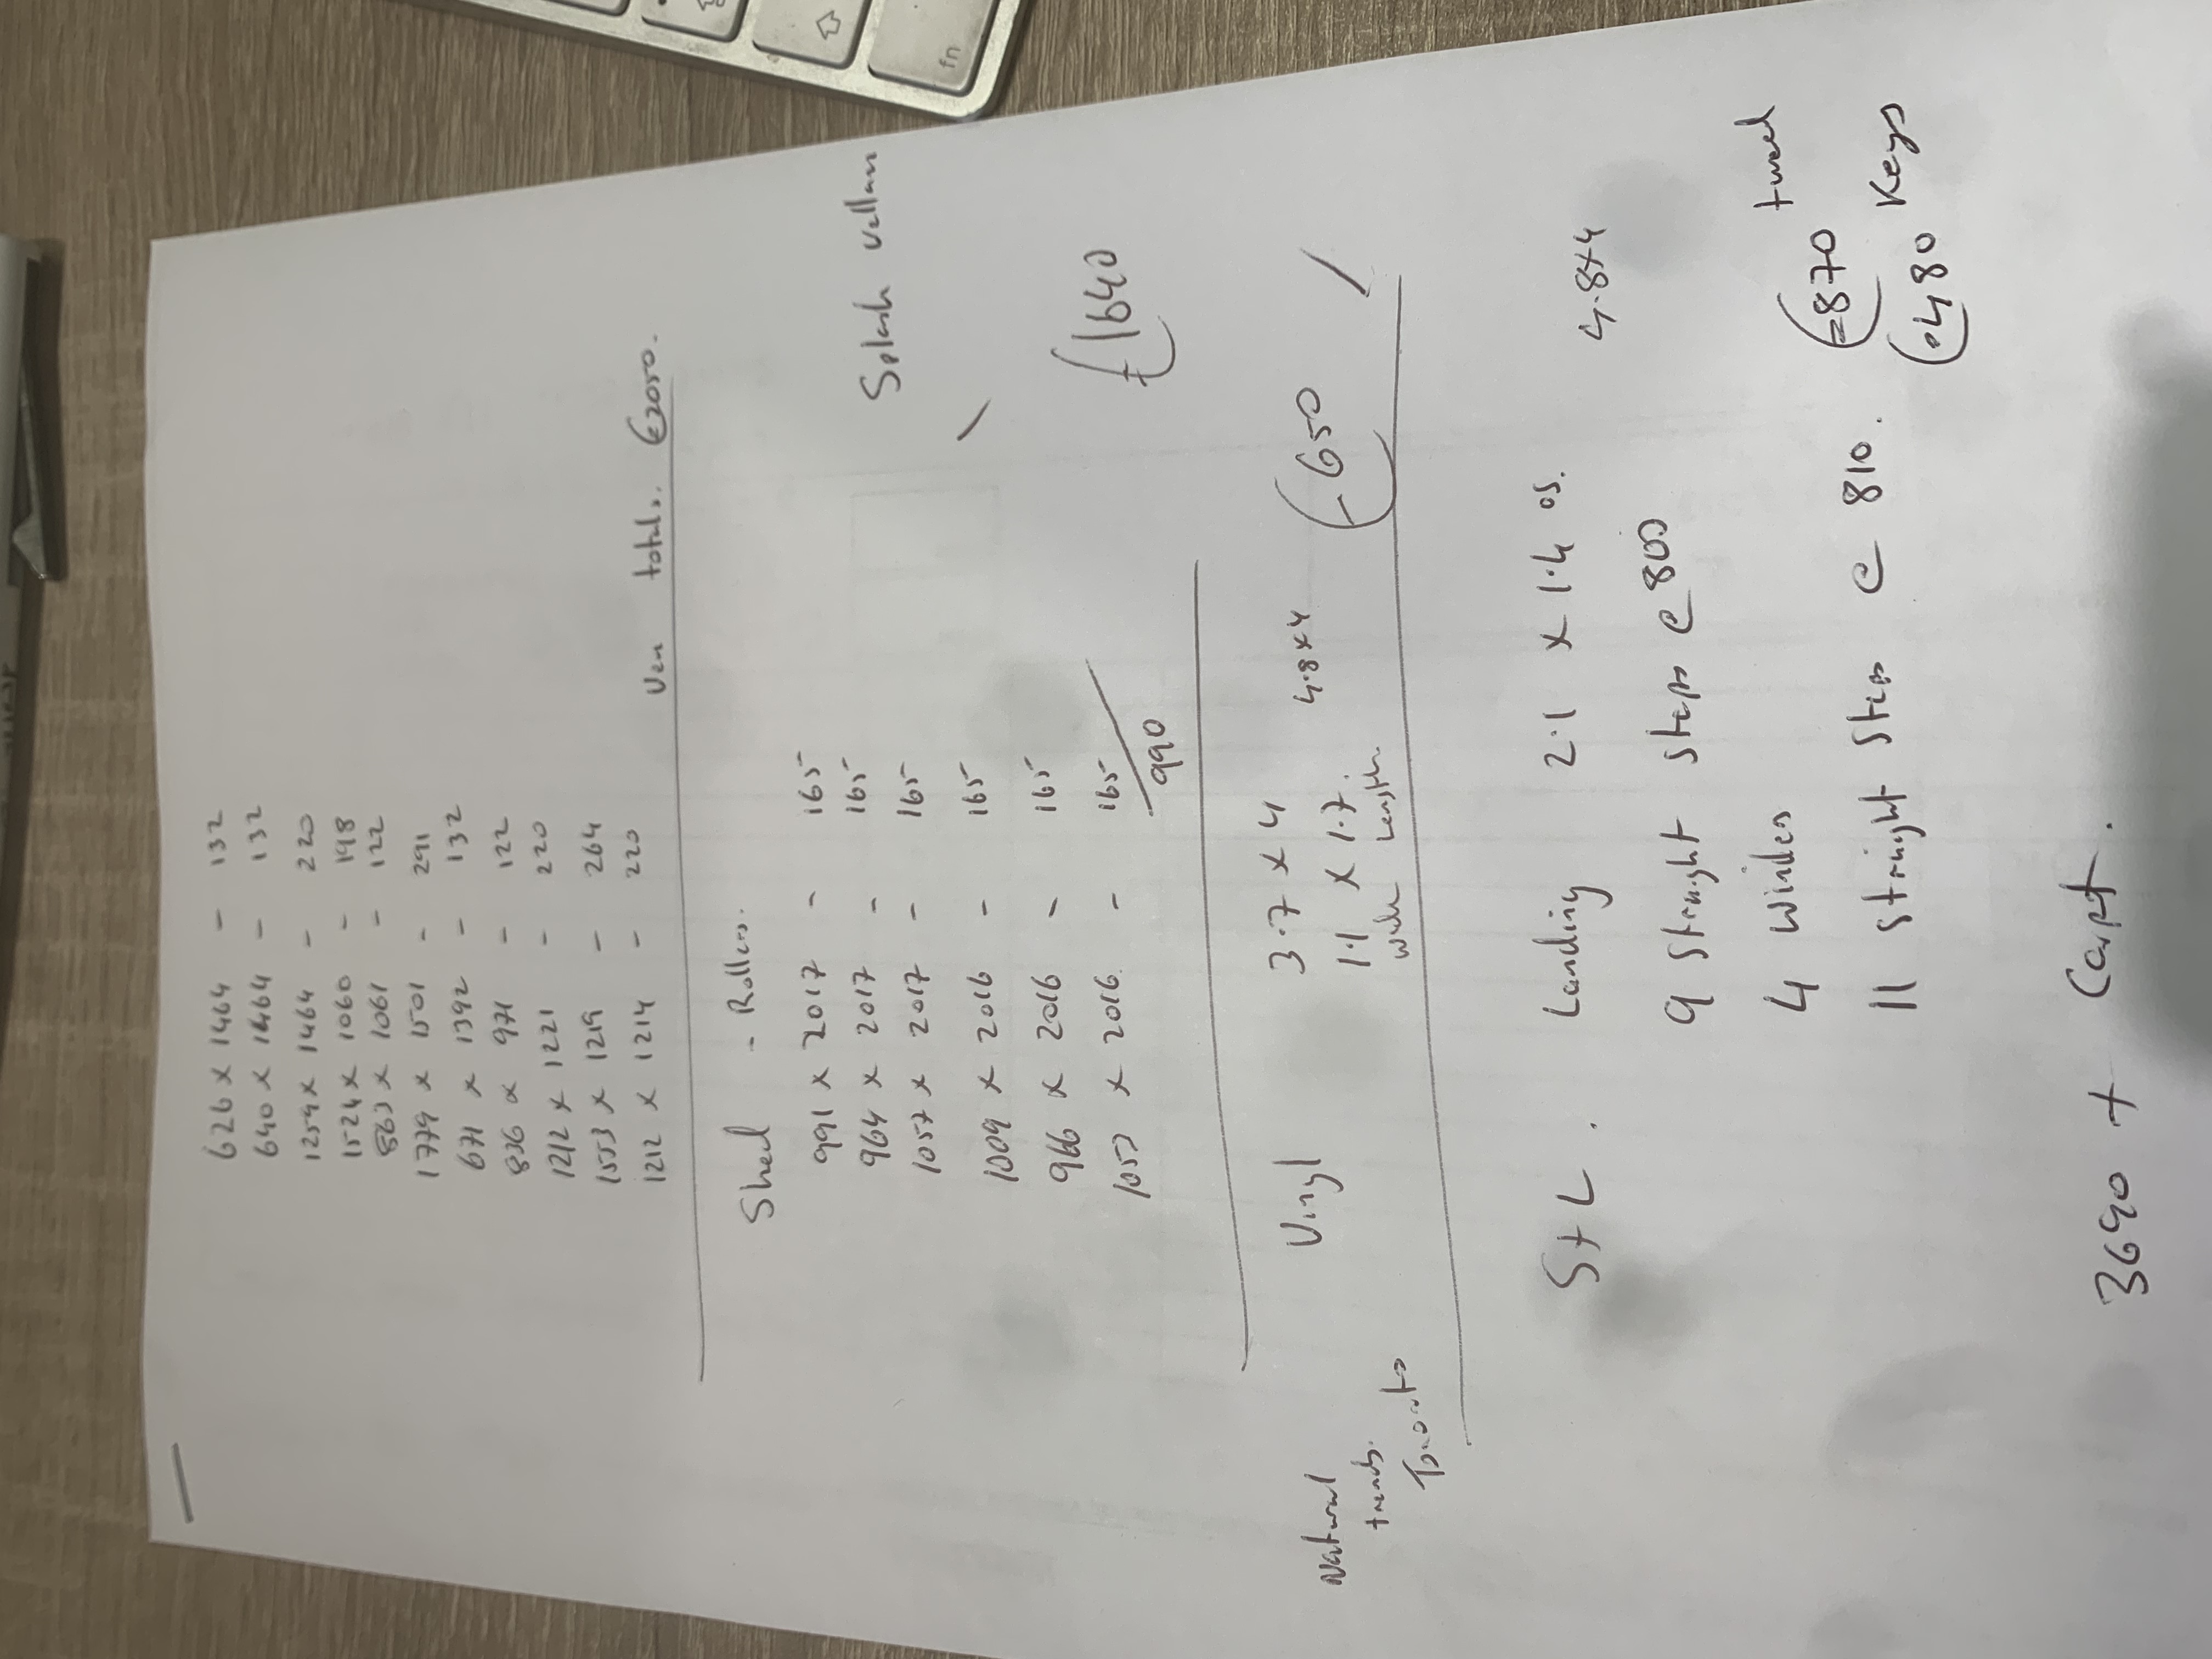 626 x 1464 - 132
640 x 1464 - 132
1259 x 1464 - 220
1524 x 1060 - 198
863 x 1061 - 122
1779 x 1501 - 291
671 x 1392 - 132
836 x 971 - 122
1212 x 1221 - 220
1553 x 1219 - 264
1212 x 1214 - 220
Ven total. £2050.
Shed - Rollers.
Splash vellum
991 x 2017 - 165
964 x 2017 - 165
1057 x 2017 - 165
1009 x 2016 - 165
966 x 2016 - 165
1053 x 2016 - 165
990
£1640
Vinyl 3.7 x 4 4.8x4
1.1 x 1.7
wide Length
£650
Natural
trends.
Toronto
S+L. Landing 2.1 x 1.4 os. 4.8x4
9 straight steps @ 800
4 windes
11 straight steps @ 810.
£870
£480 Keys
3690 + Carpt.
fn